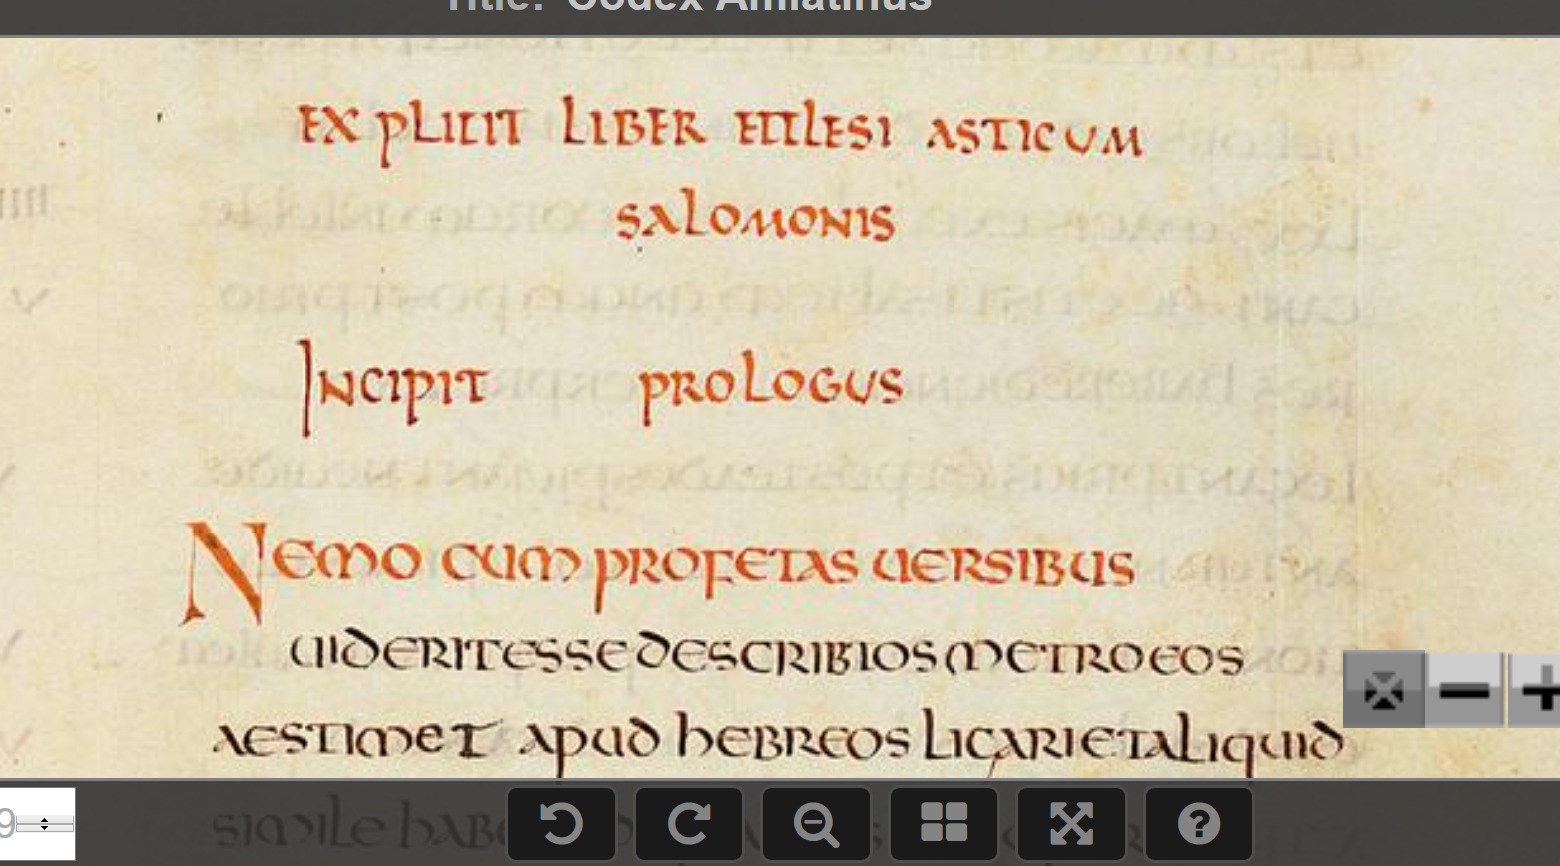 Title: Codex Amiatinus
EXPLICIT LIBER ECCLESIASTICUM
SALOMONIS
INCIPIT PROLOGUS
NEMO CUM PROFETAS UERSIBUS
UIDERIT ESSE DESCRIBTOS METRO EOS
AESTIMET APUD HEBREOS LIGARI ET ALIQUID
SIMILE
9